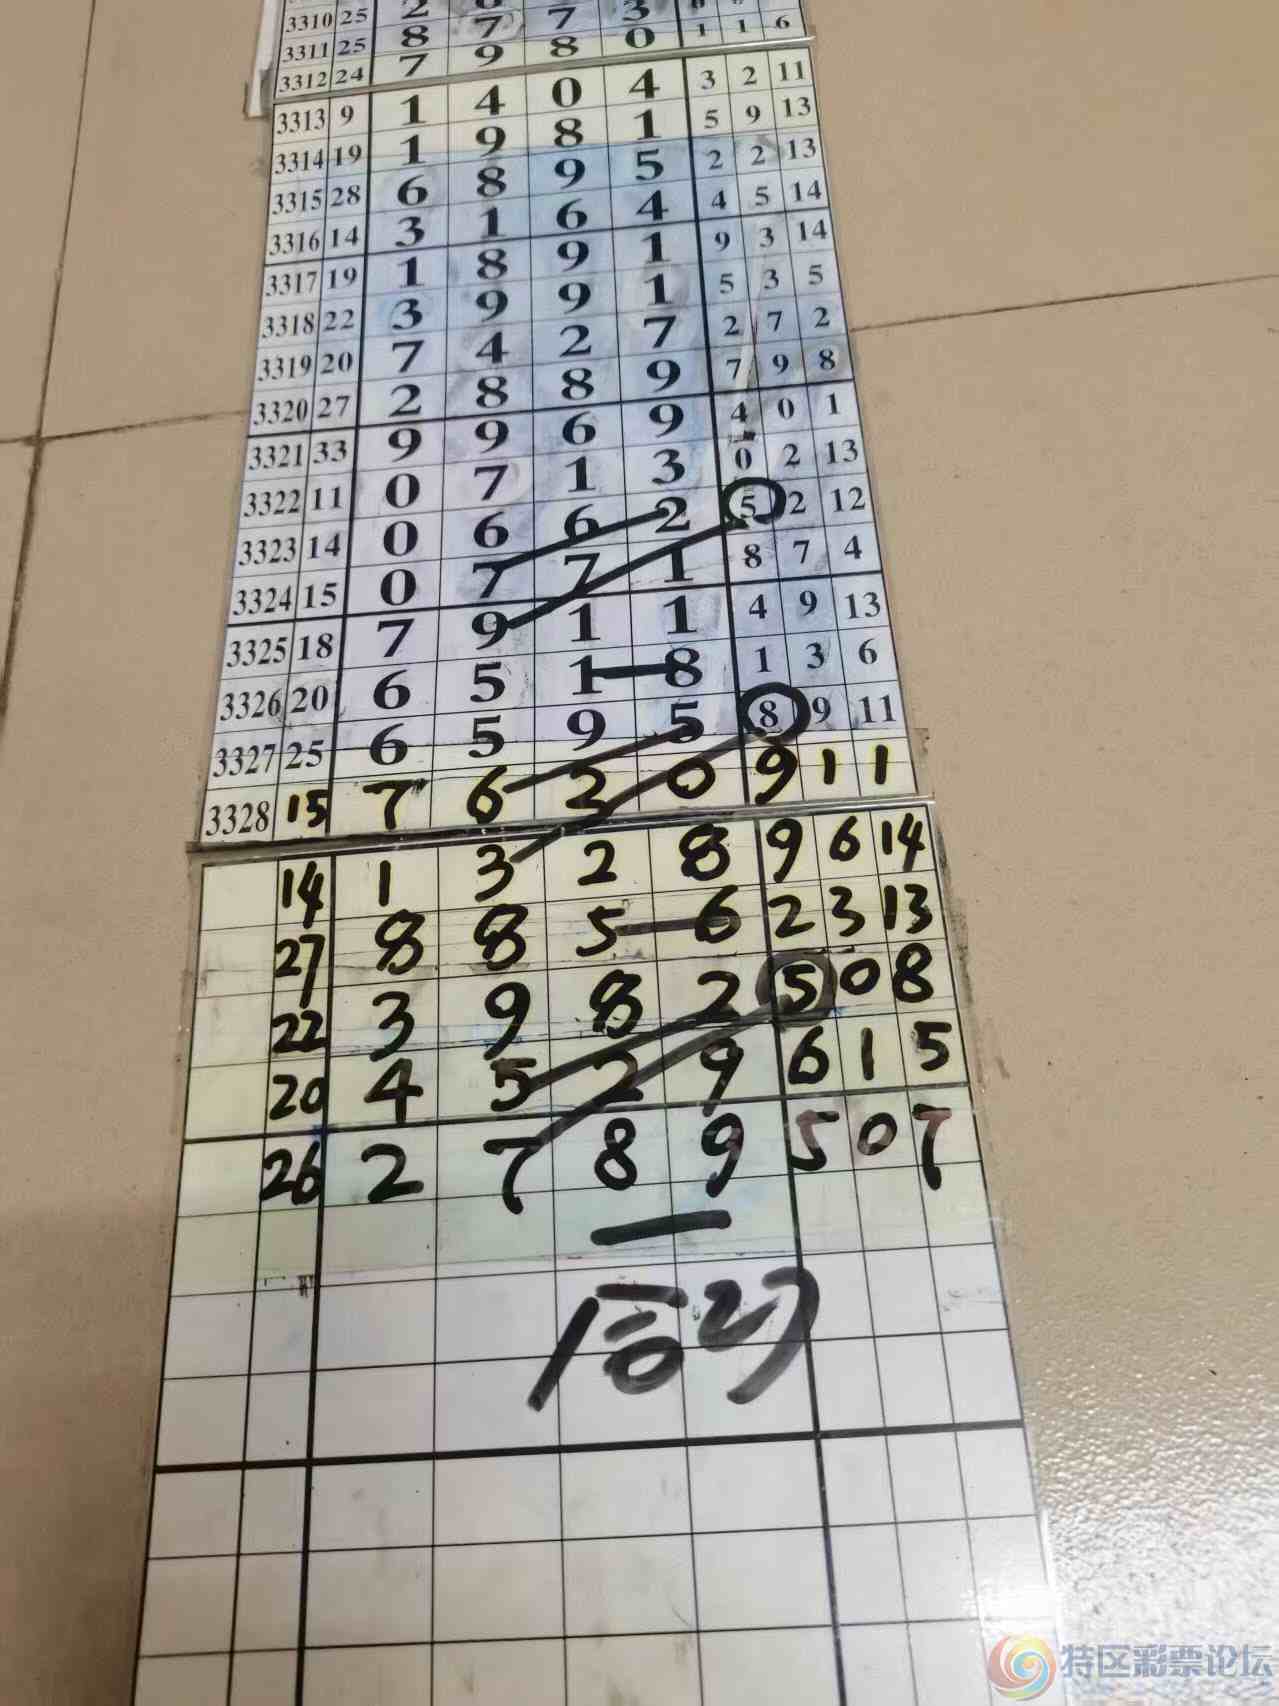 3310 25 2 7 3
3311 25 8 7 7 3 1 1 6
3312 24 7 9 8 0 3 2 11
3313 9 1 4 0 4 5 9 13
3314 19 1 9 8 1 2 2 13
3315 28 6 8 9 5 4 5 14
3316 14 3 1 6 4 9 3 14
3317 19 1 8 9 1 5 3 5
3318 22 3 9 9 1 2 7 2
3319 20 7 4 2 7 7 9 8
3320 27 2 8 8 9 4 0 1
3321 33 9 9 6 9 0 2 13
3322 11 0 7 1 3 5 2 12
3323 14 0 6 6 2 8 7 4
3324 15 0 7 7 1 4 9 13
3325 18 7 9 1 1 1 3 6
3326 20 6 5 1 8 8 9 11
3327 25 6 5 9 5 9 1 1
3328 15 7 6 2 0
14 1 3 2 8 9 6 14
27 8 8 5 6 2 3 13
22 3 9 8 2 5 0 8
20 4 5 2 9 6 1 5
26 2 7 8 9 5 0 7
特区彩票论坛